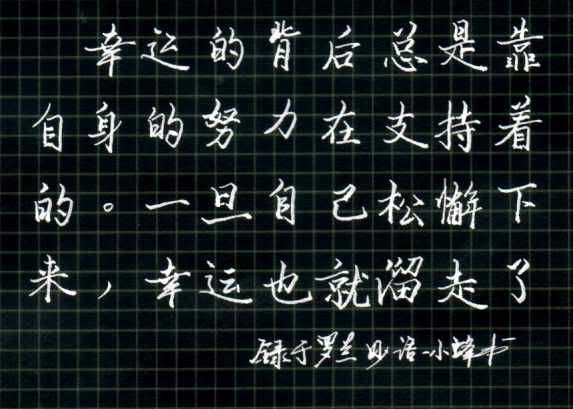 幸运的背后总是靠
自身的努力在支持着
的。一旦自己松懈下
来，幸运也就溜走了
录于罗兰妙语 小蜂书